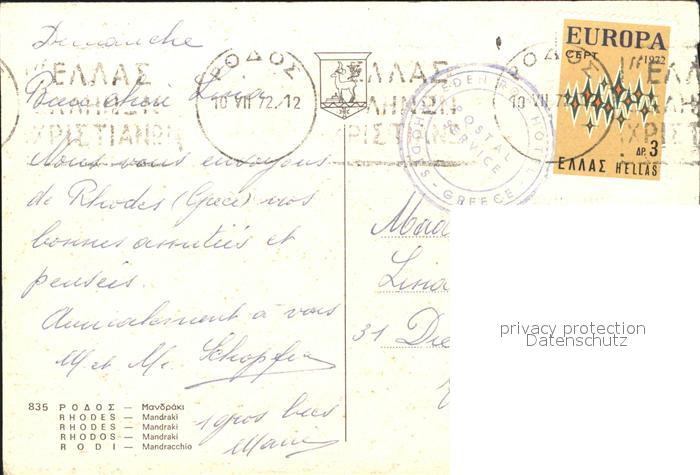 Dimanche
ΡΟΔΟΣ
10 VII 72.12
ΕΛΛΑΣ
ΕΛΛΗΝΩΝ
ΧΡΙΣΤΙΑΝΩΝ
Lina
Nous vous envoyons
de Rhodes (Grèce) nos
bonnes amitiés et
pensées.
Amicalement à vous
M et Me. Schopfer
1 gros bec
835 ΡΟΔΟΣ — Μανδράκι
RHODES — Mandraki
RHODES — Mandraki
RHODOS — Mandraki
RODI — Mandracchio
ΡΟΔΟΣ
10 VII 72
ΕΛΛΑΣ
ΕΛΛΗΝΩΝ
ΧΡΙΣΤΙΑΝΩΝ
EDEN ROC HOTEL
RHODOS - GREECE
POSTAL
SERVICE
EUROPA
CEPT 1972
ΔΡ. 3
ΕΛΛΑΣ HELLAS
Lina
31 Die
privacy protection
Datenschutz